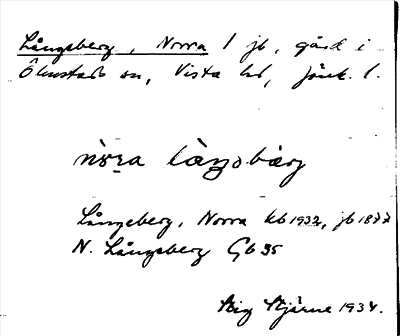 Långeberg, Norra 1 jb, gård i
Ölmstads sn, Vista hd, Jönk. l.
nòra làŋobærg
Långeberg, Norra kb 1932, jb 1877
N. Långeberg Gb 35
Stig Stjärne 1934.